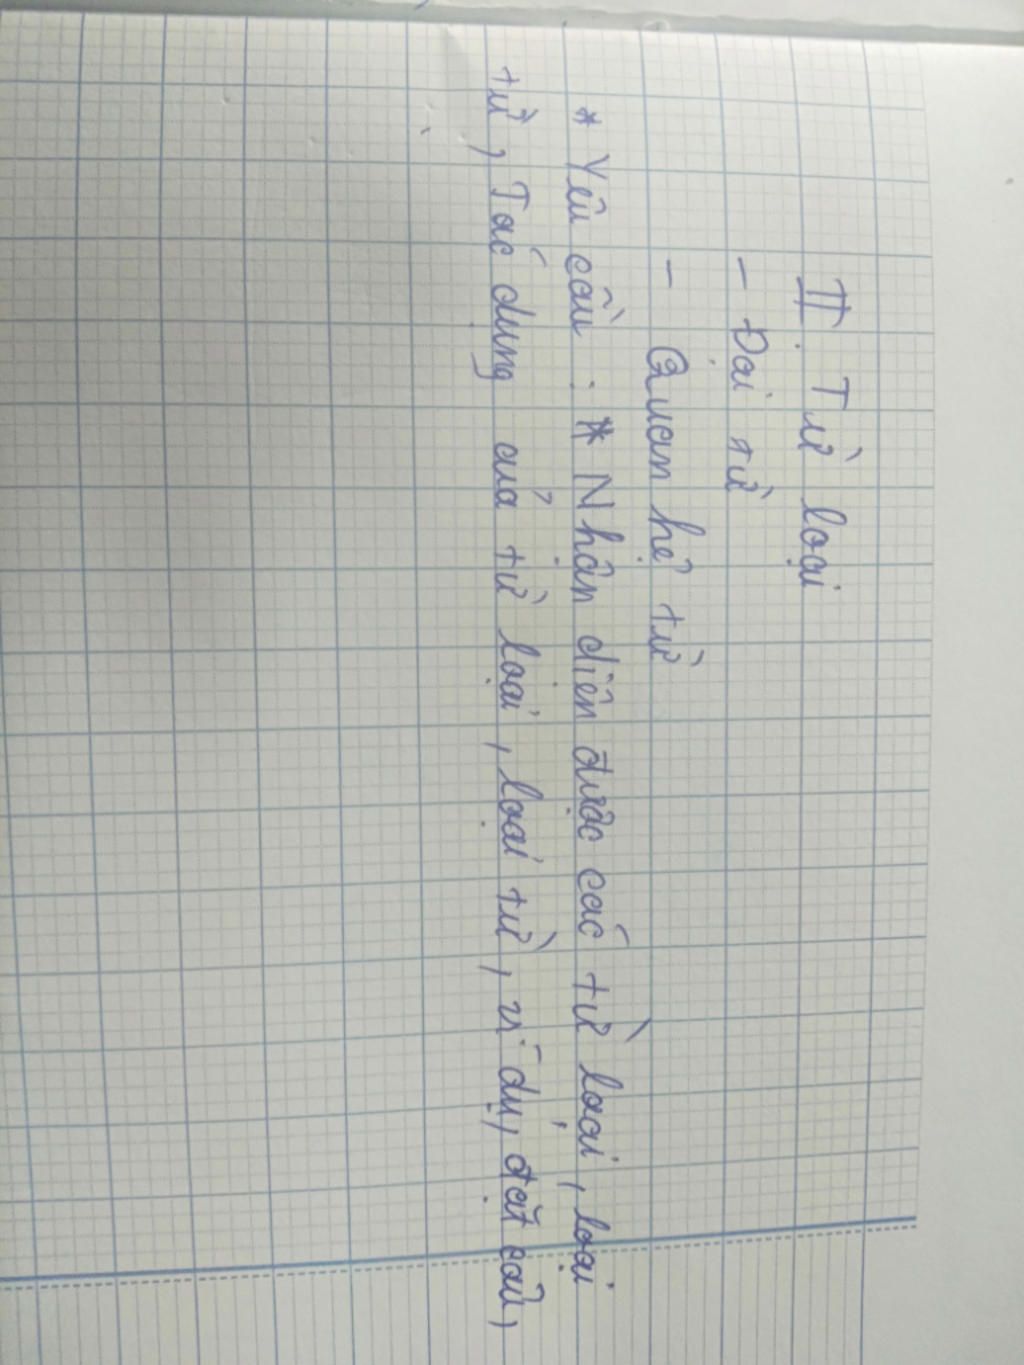 II. Từ loại
- Đại từ
- Quan hệ từ
* Yêu cầu : * Nhận diện được các từ loại, loại
từ, Tác dụng của từ loại, loại từ, ví dụ, đặt câu,